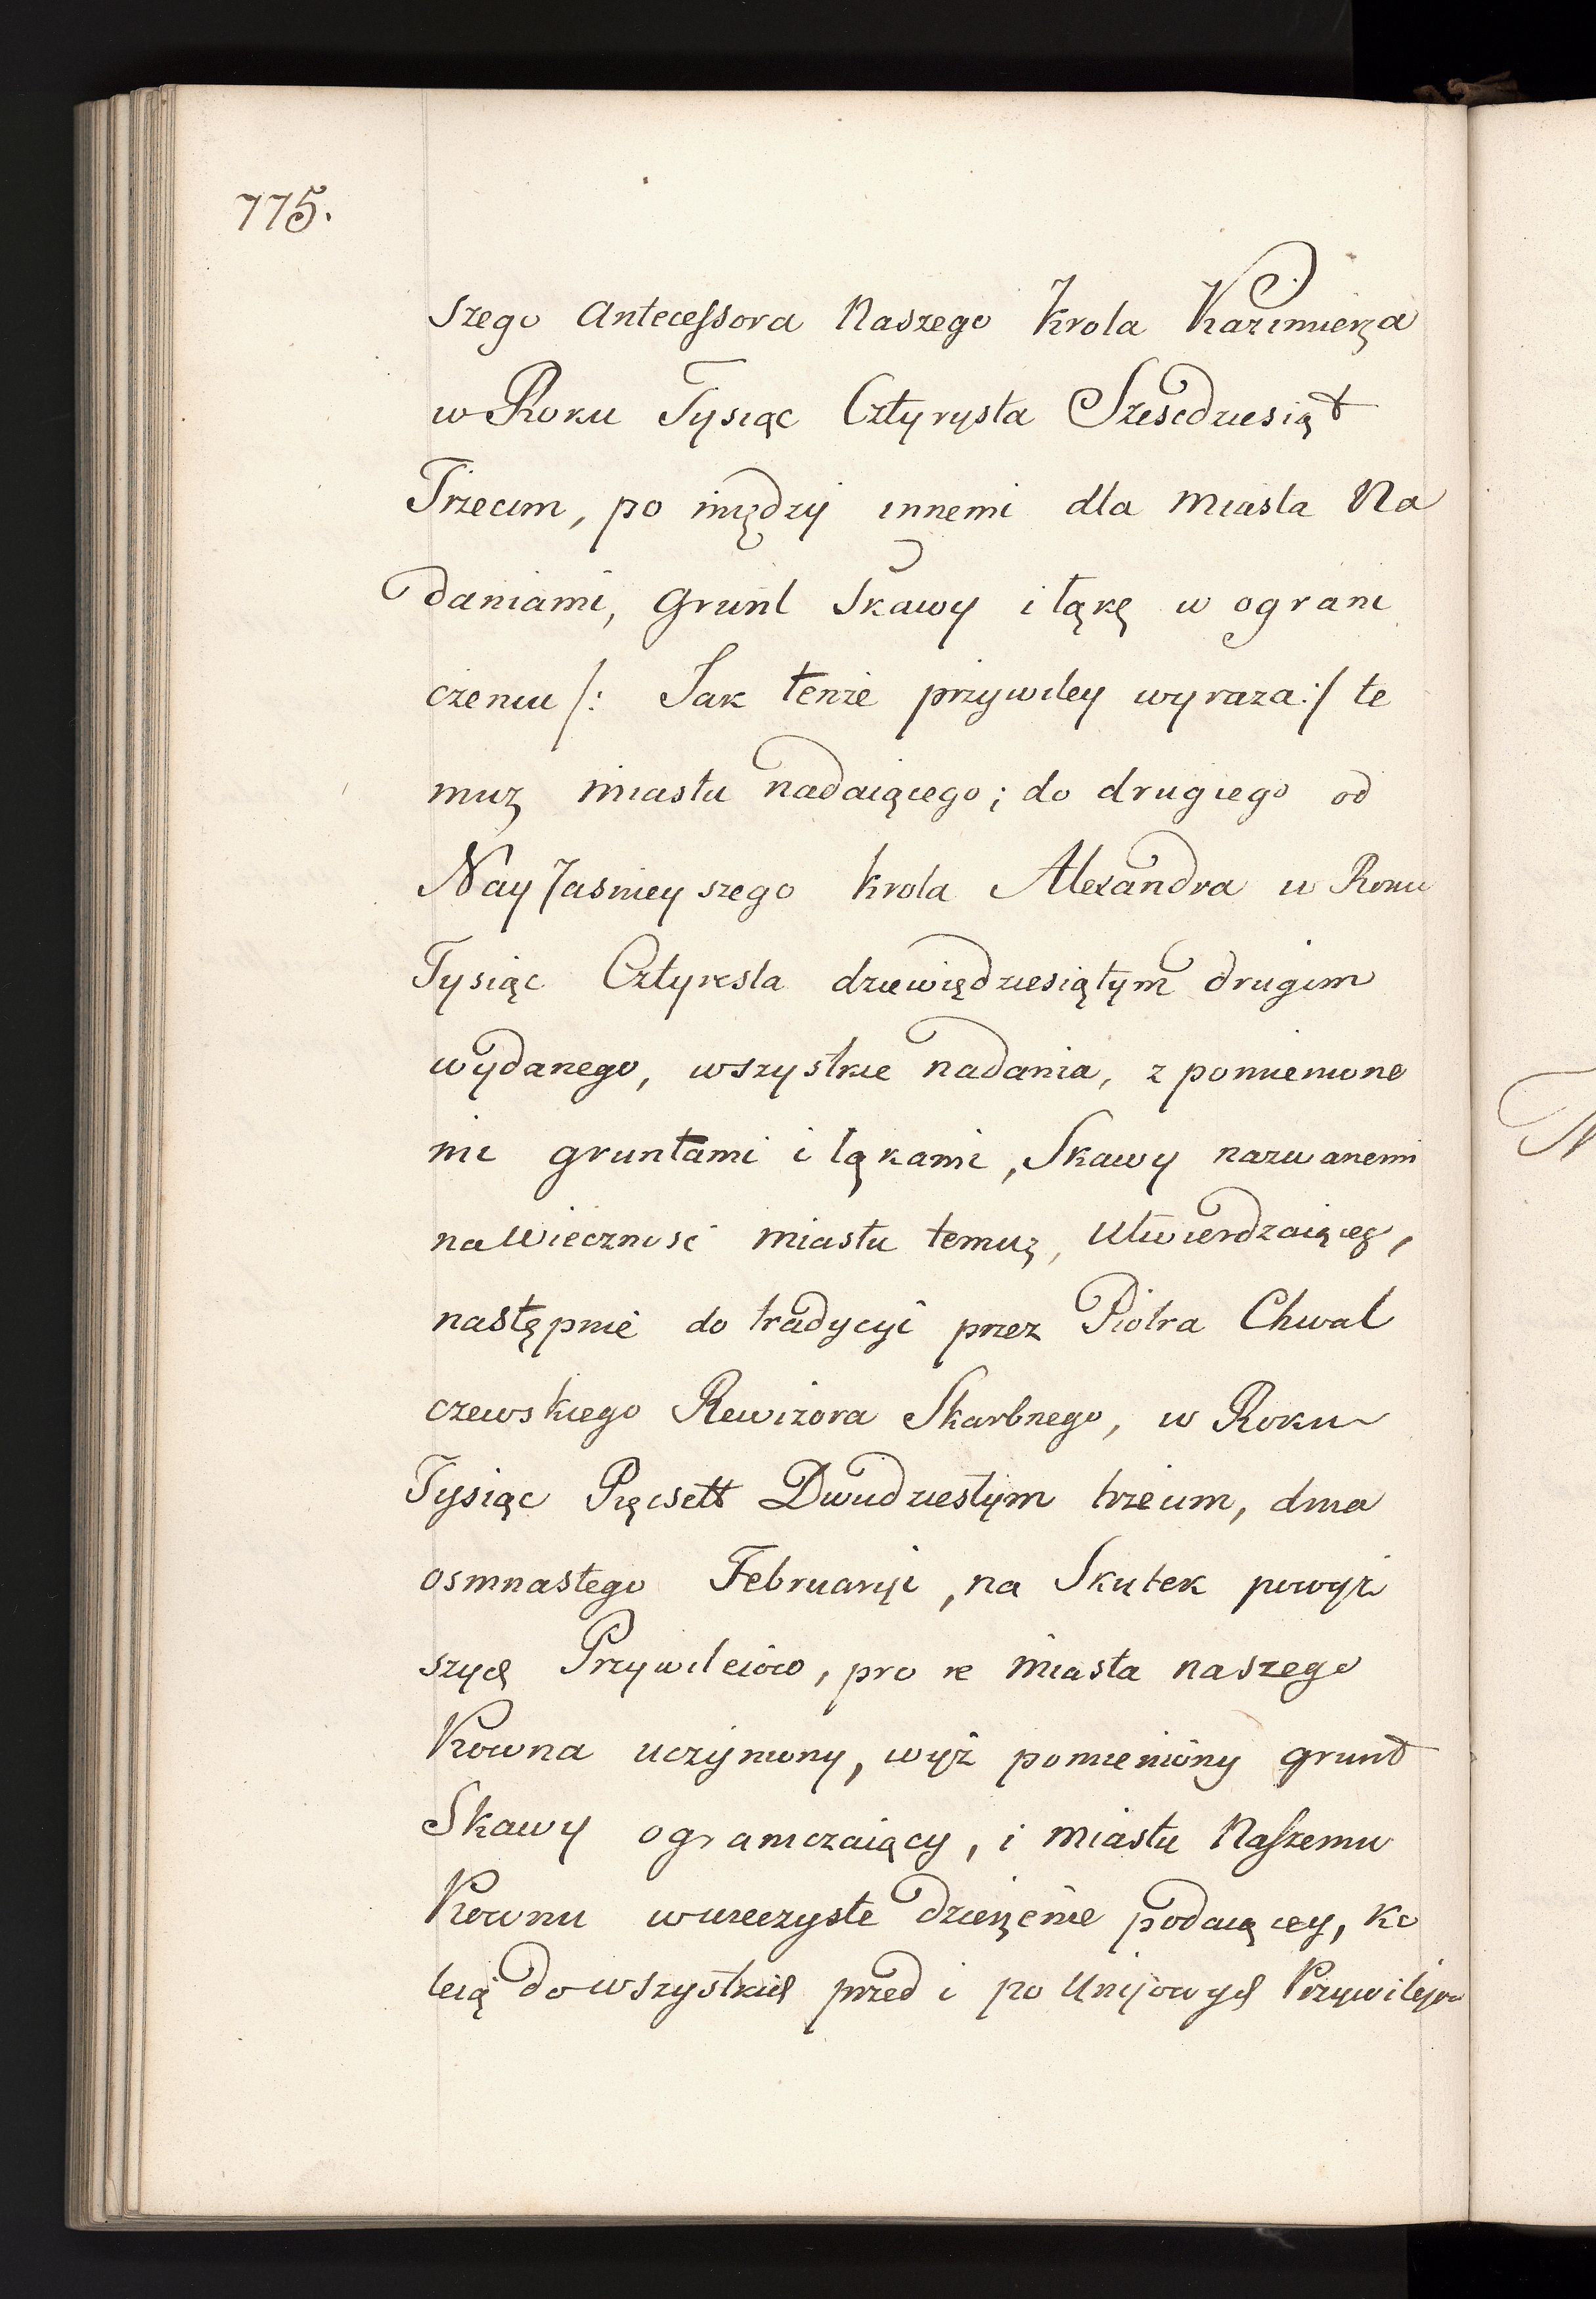 775.
szego Antecessora Naszego Krola Kazimierza
w Roku Tysiąc Cztyrysta Szescdziesiąt
Trzecim, po między innemi dla Miasta Na
daniami, Grunt Skawy i łąkę w ograni
czeniu /: Jak tenże przywiley wyraza :/ te
muż miastu nadaiącego; do drugiego od
Nay Jasnieyszego Krola Alexandra w Roku
Tysiąc Cztyrysta dziewiędziesiątym drugim
wydanego, wszystkie nadania, z pomienione
mi gruntami i łąkami, Skawy nazwanemi
na Wieczność miastu temuż, Utwierdzaiąceg,
następnie do tradycyi przez Piotra Chwal
czewskiego Rewizora Skarbnego, w Roku
Tysiąc Pięcsett Dwudziestym trzecim, dnia
osmnastego Februaryi, na Skutek powyż
szych Przywileiow, pro re miasta naszego
Kowna uczyniony, wyż pomieniony grunt
Skawy ograniczaiący, i miastu Naszemu
Kownu w wieczyste dzierżenie podaiącey, ko
leią do wszystkich przed i po Unijowych Przywilejow